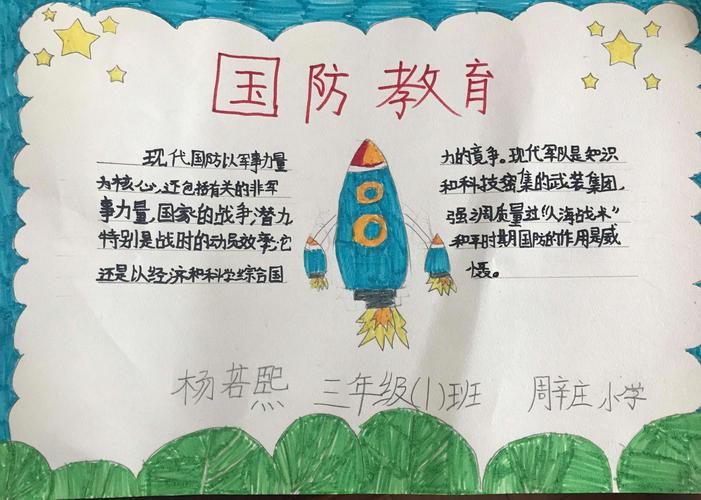 国防教育
现代国防以军事力量
为核心,还包括有关的非军
事力量,国家的战争潜力
特别是战时的动员效率;它
还是以经济和科学综合国
力的竞争。现代军队是知识
和科技密集的武装集团,
强调质量过“人海战术”
和平时期国防的作用是威
慑。
杨若熙 三年级(1)班 周辛庄小学